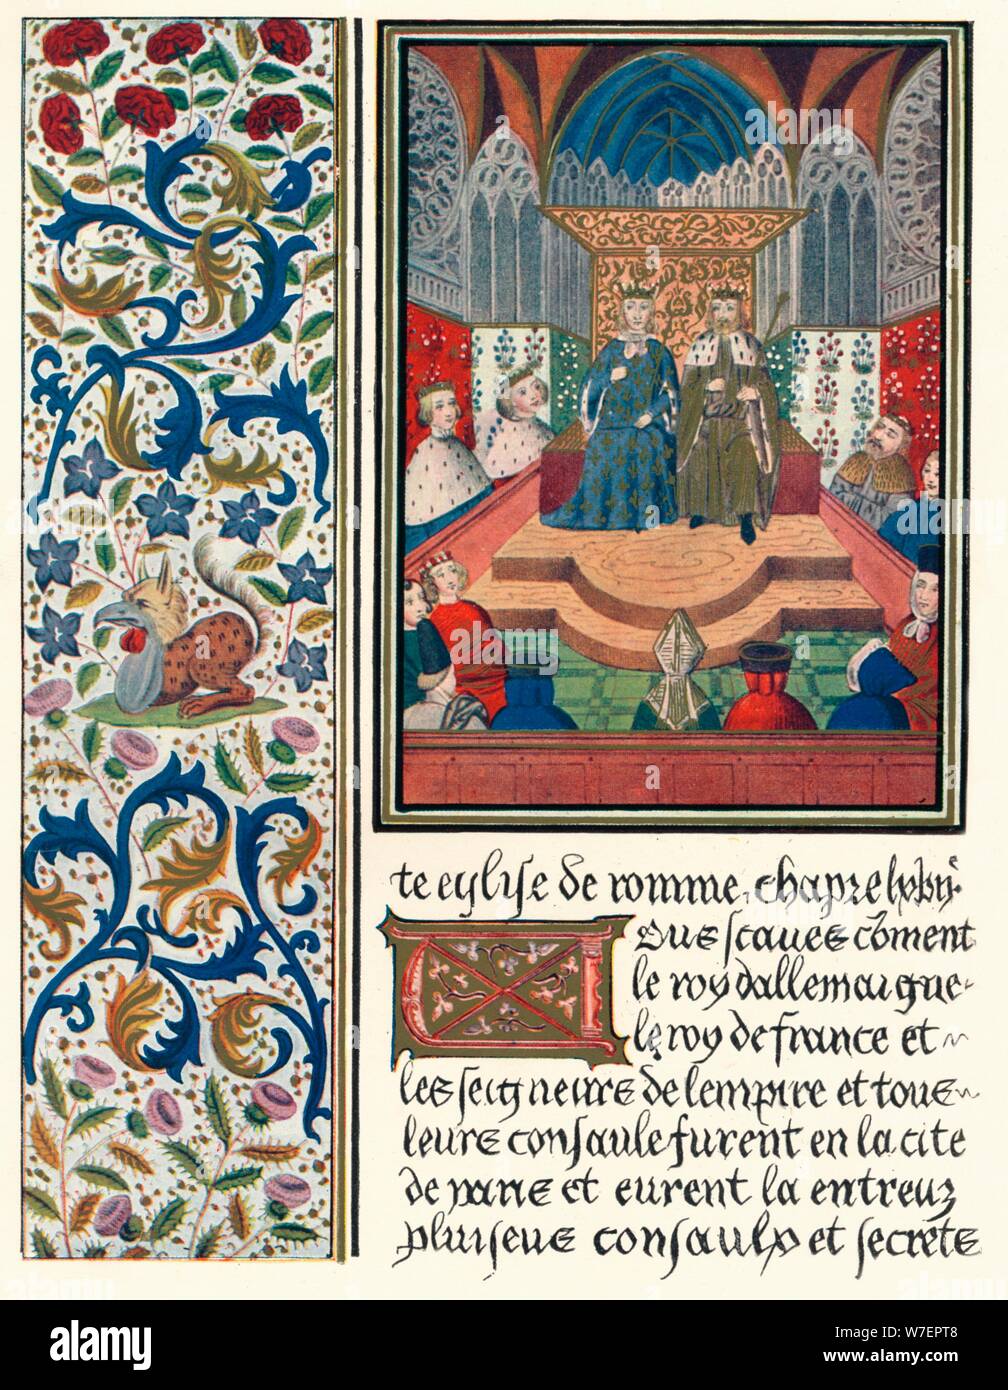 te eglyse de romme. chapre lxviij.
Ous scaues coment
le roy dallemaigne
le roy de france et
les seigneurs de lempire et tous
leurs consaulx furent en la cite
de parie et eurent la entreulz
pluiseus consaulx et secrets
alamy
Image ID: W7EPT8
www.alamy.com